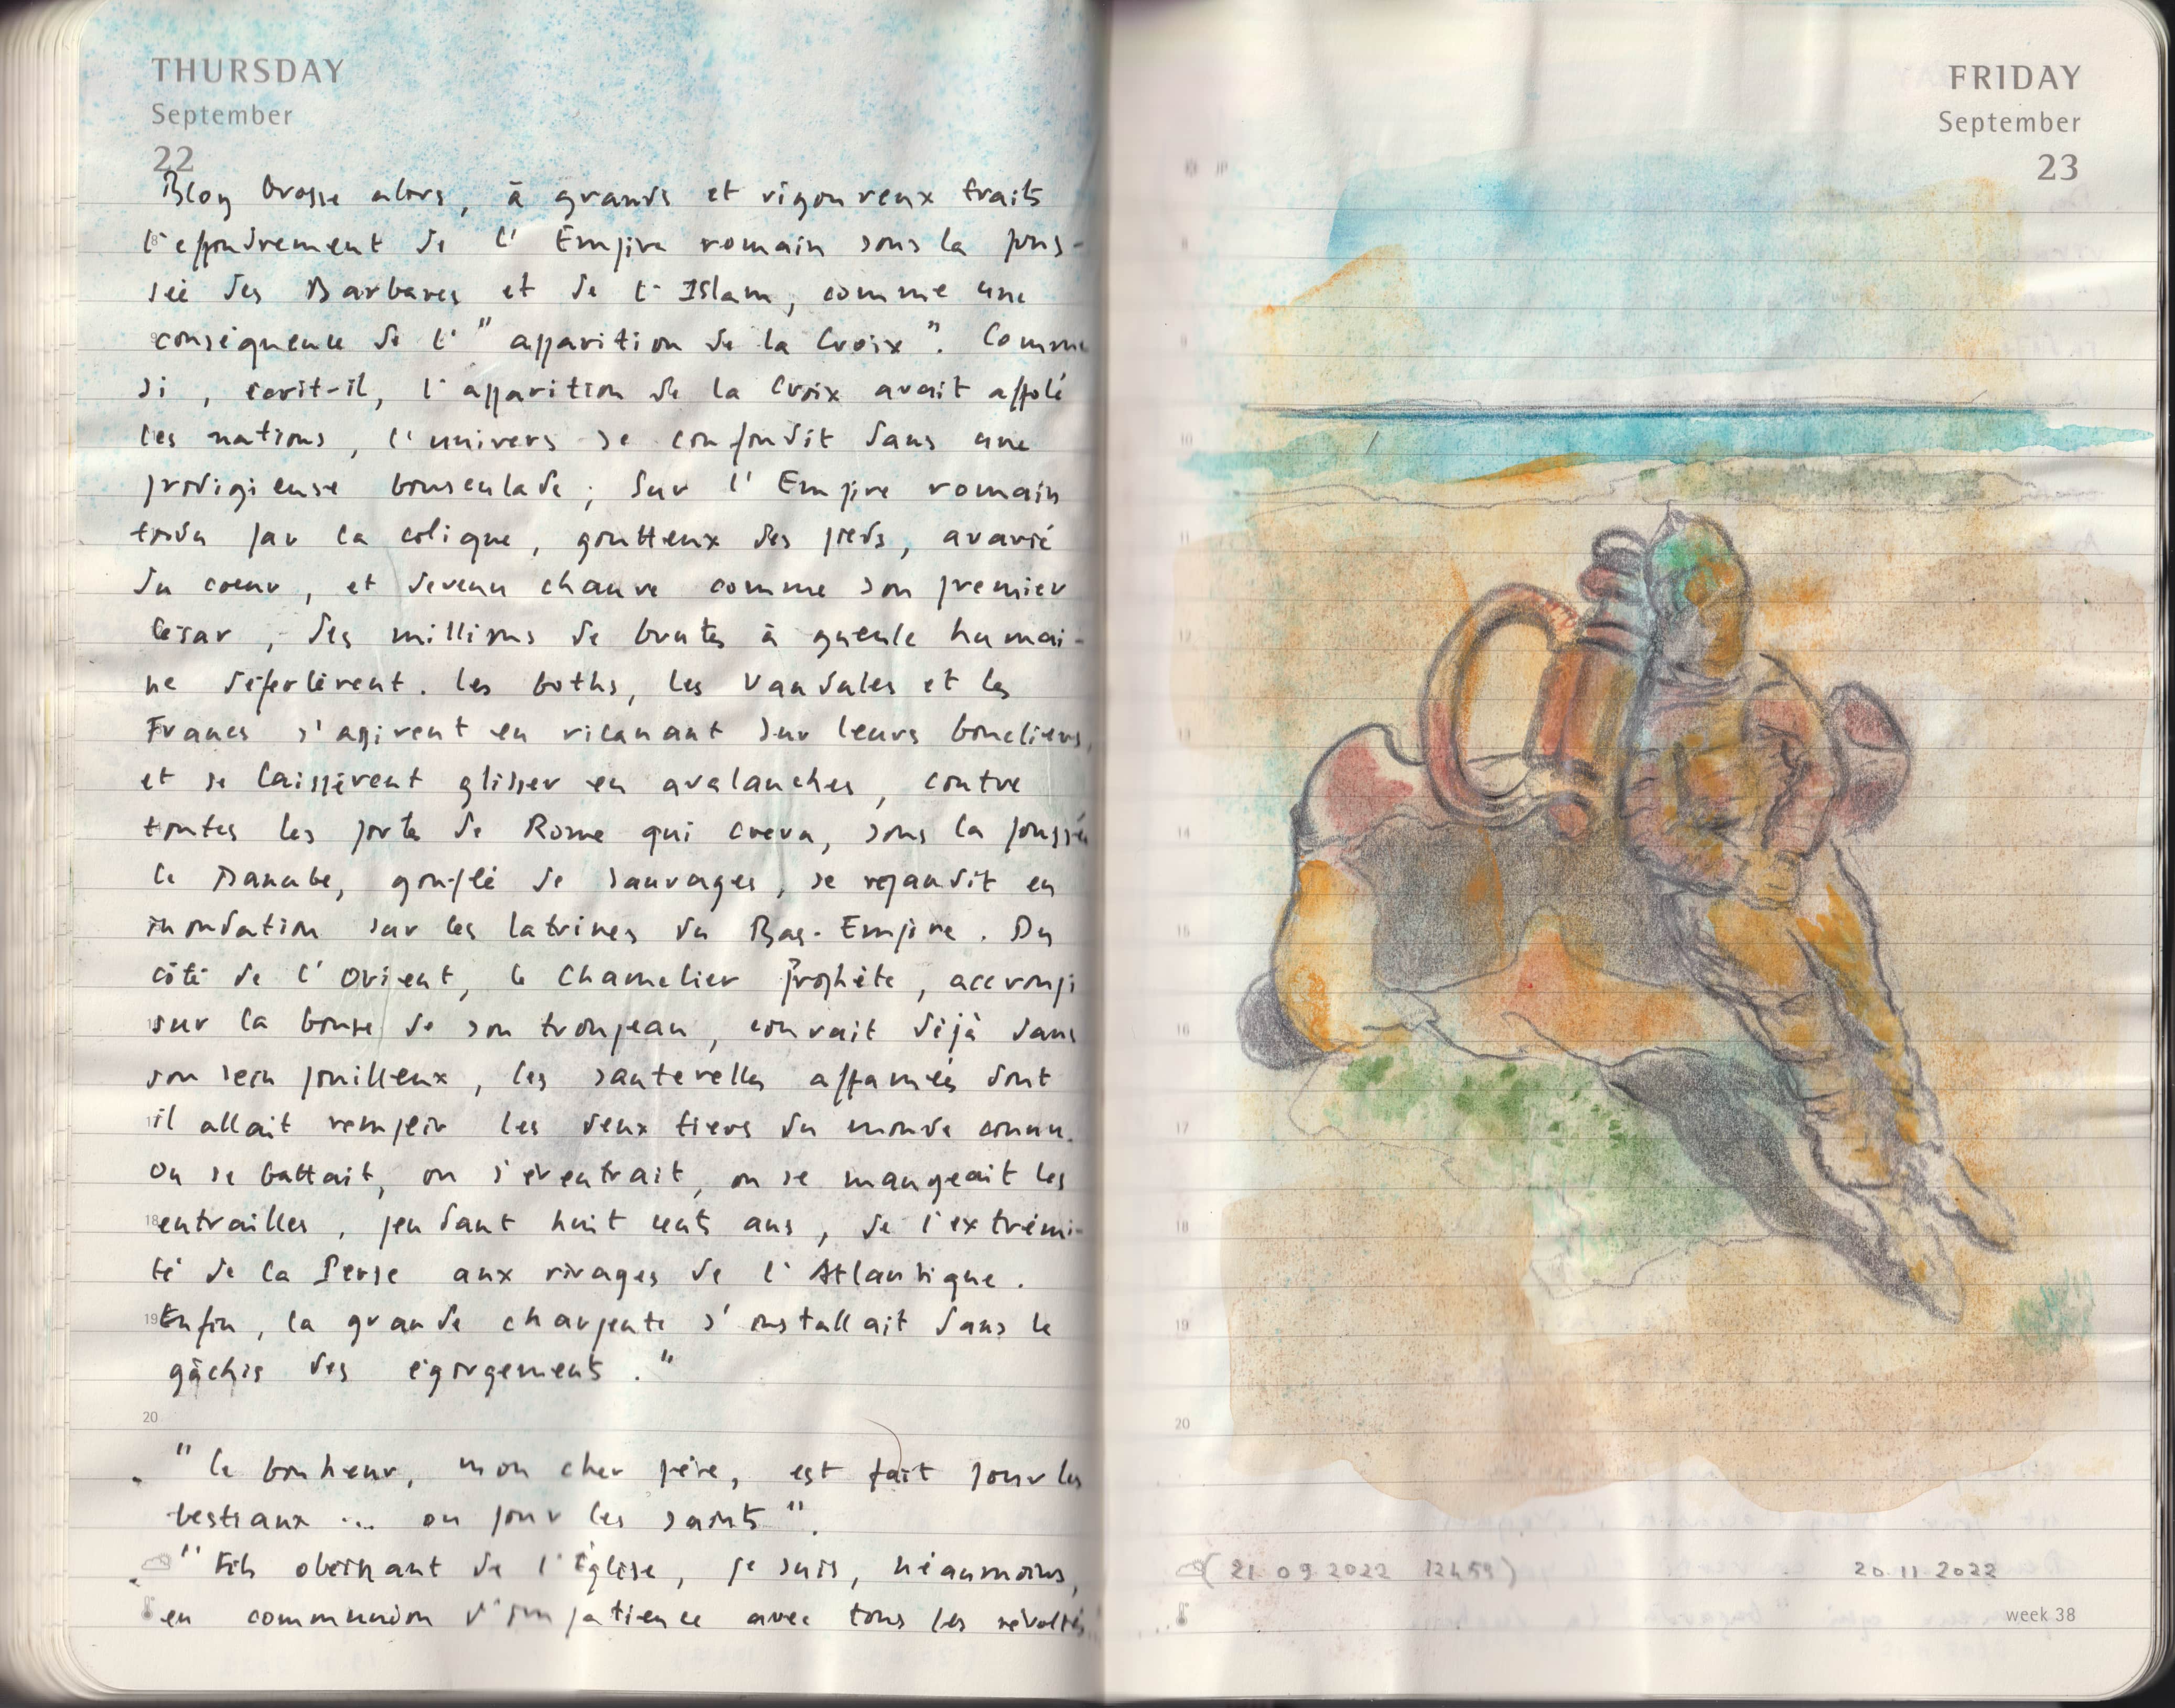 THURSDAY
September
22
Bloy brosse alors, à grands et vigoureux traits
l'effondrement de l'Empire romain sous la pous-
sée des Barbares et de l'Islam, comme une
conséquence de l'"apparition de la Croix". Comme
si, écrit-il, l'apparition de la Croix avait affolé
les nations, l'univers se confondit dans une
prodigieuse bousculade; sur l'Empire romain
tordu par la colique, goutteux des pieds, avarié
du coeur, et devenu chauve comme son premier
César, des millions de brutes à gueule humai-
ne déferlèrent. Les Goths, les Vandales et les
Francs s'assirent en ricanant sur leurs boucliers,
et se laissèrent glisser en avalanches, contre
toutes les portes de Rome qui creva, sous la poussée
le Danube, gonflé de sauvages, se répandit en
inondation sur les latrines du Bas-Empire. Du
côté de l'Orient, le Chamelier Prophète, accroupi
sur la bouse de son troupeau, couvait déjà dans
son sein pouilleux, les sauterelles affamées dont
il allait remplir les deux tiers du monde connu.
On se battait, on s'éventrait, on se mangeait les
entrailles, pendant huit cents ans, de l'extrémi-
té de la Perse aux rivages de l'Atlantique.
Enfin, la grande charpente s'installait dans le
gâchis des égorgements."
20
"Le bonheur, mon cher père, est fait pour les
bestiaux ... ou pour les saints".
"Fils obéissant de l'Église, je suis, néanmoins,
en communion d'impatience avec tous les révoltés
FRIDAY
September
23
8
9
10
11
12
13
14
15
16
17
18
19
20
(21 09 2022 12h59) 20 11 2022
week 38